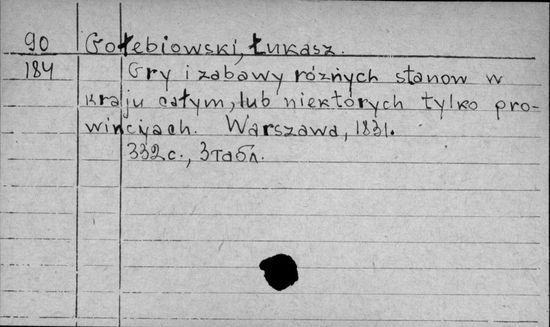 90 Gołebiowski, Łukasz.
184 Gry i zabawy różnych stanow w
kraju całym, lub niektórych tylko pro-
wincyach. Warszawa, 1831.
332 с., 3 табл.